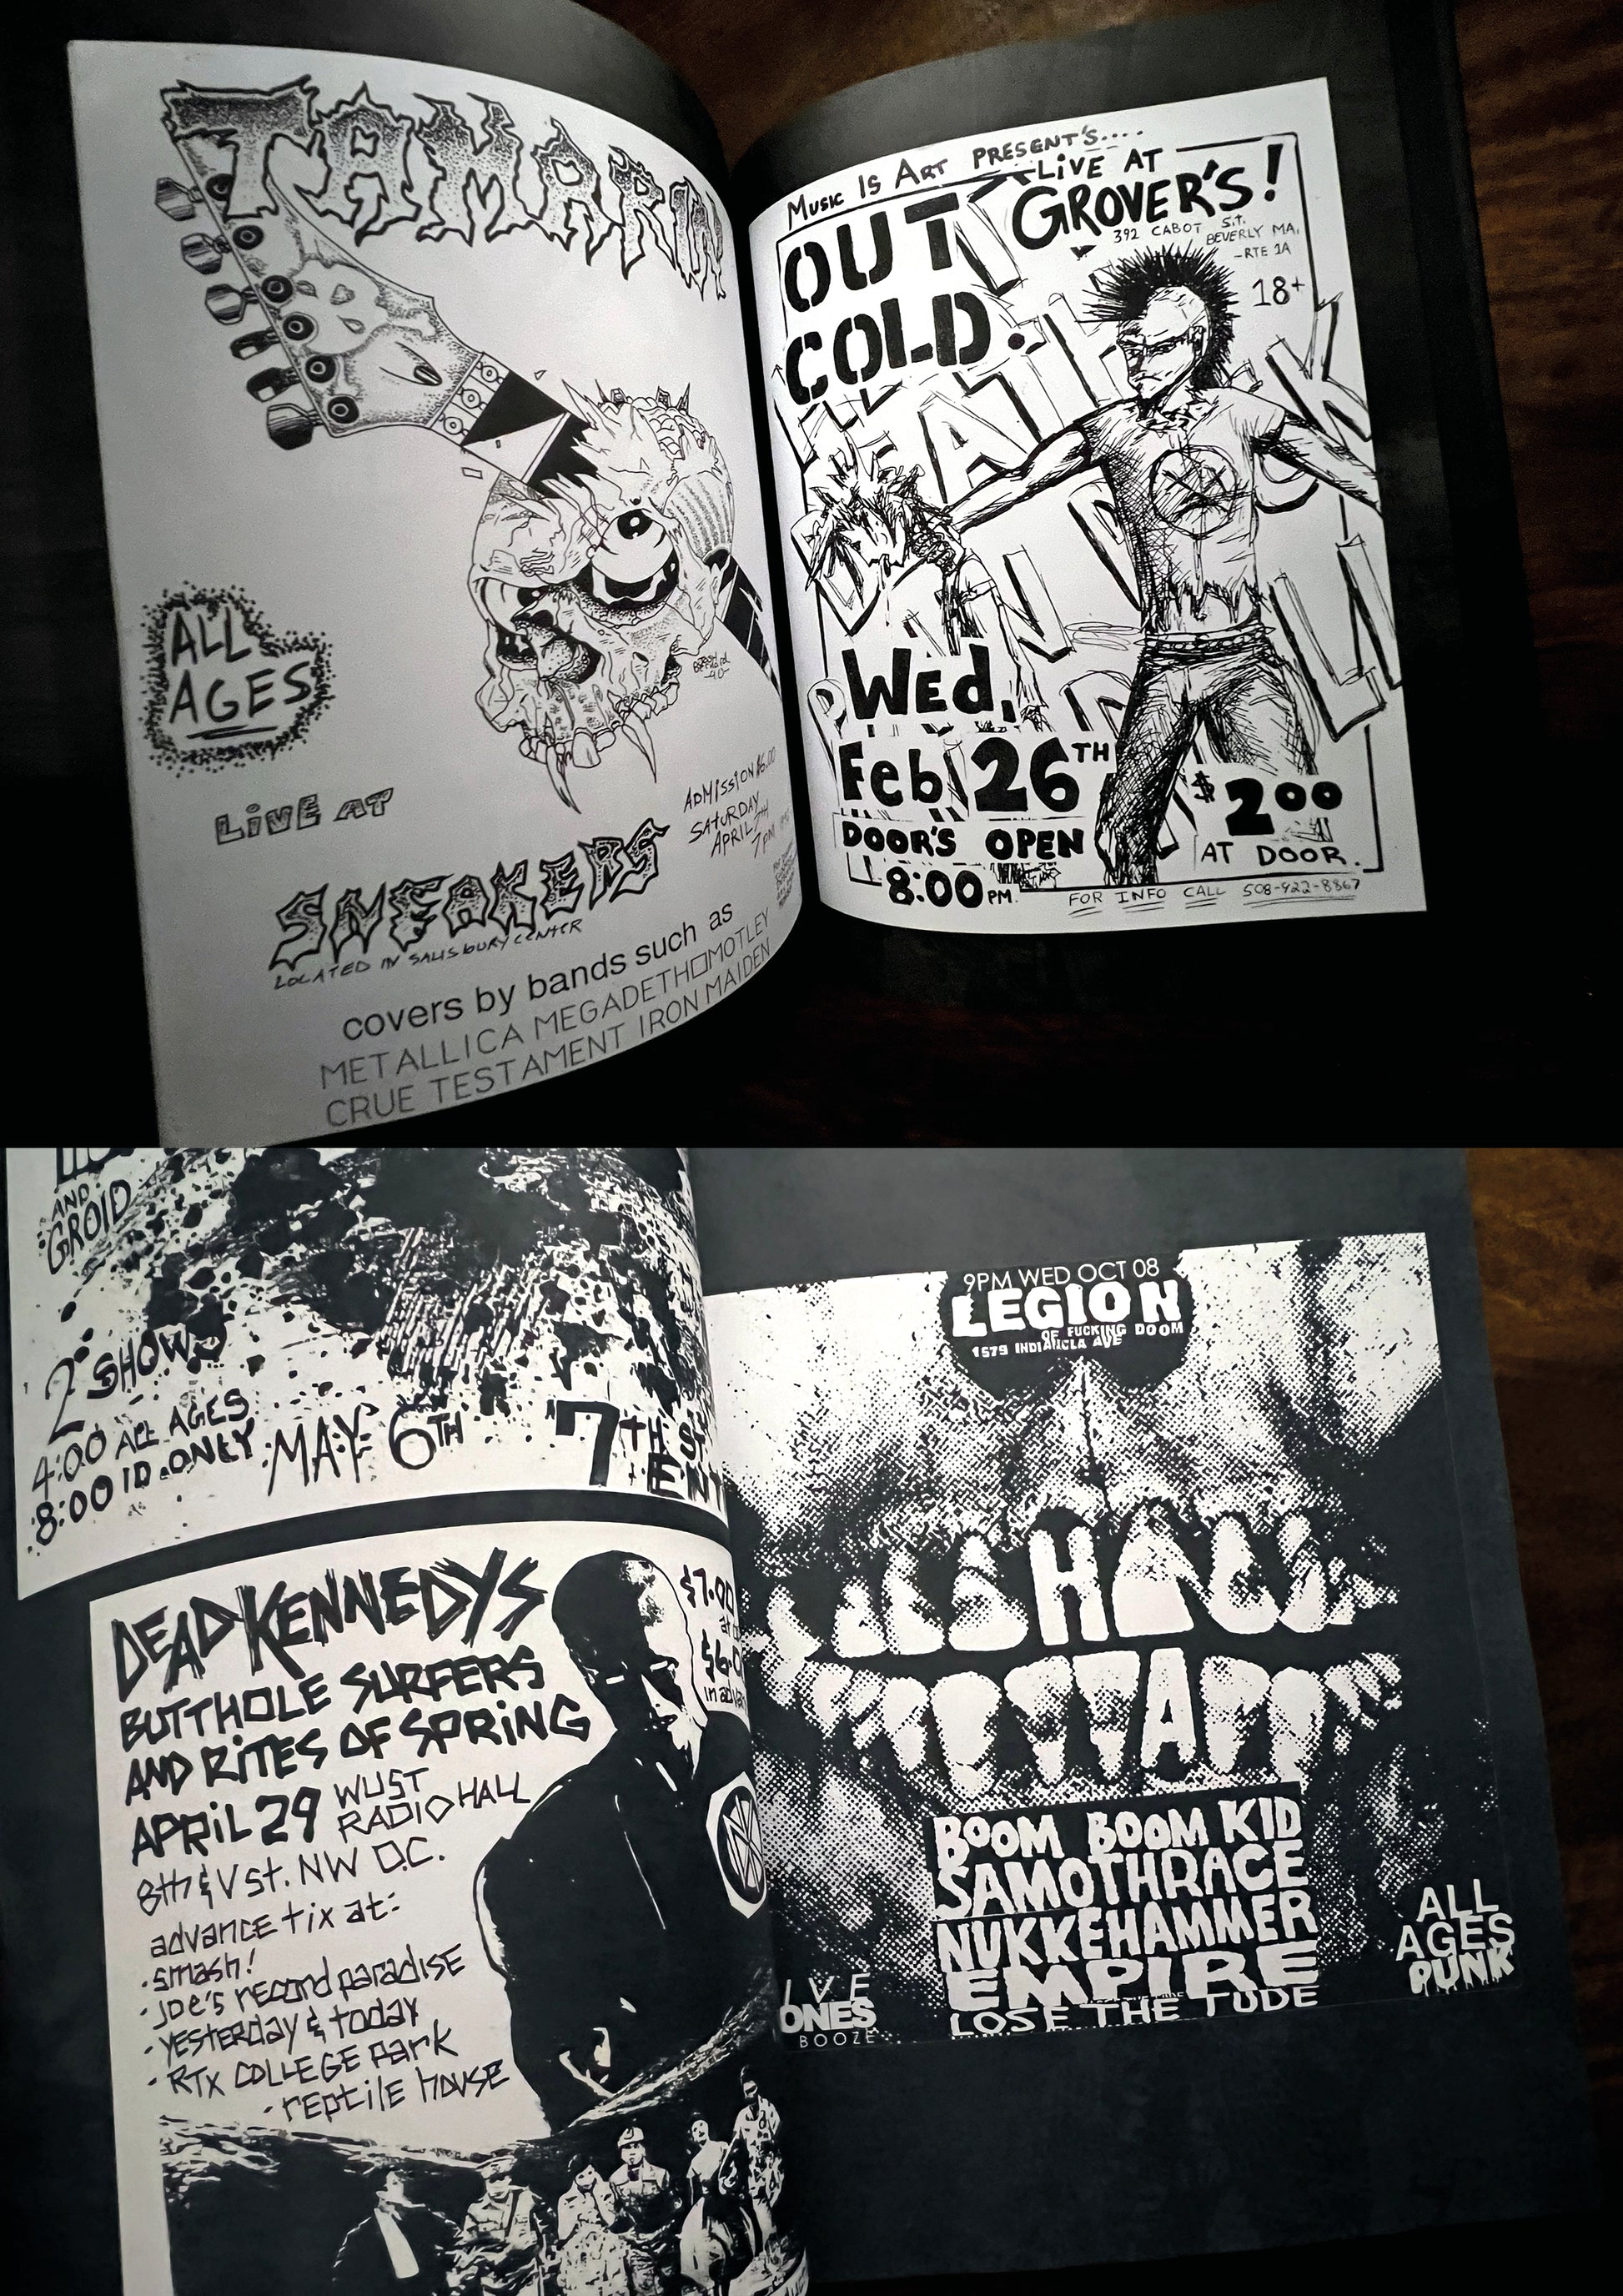 TAMARIN
ALL
AGES
LIVE AT
SNEAKERS
LOCATED IN SALISBURY CENTER
ADMISSION $6.00
SATURDAY
APRIL 7TH
7PM
covers by bands such as
METALLICA MEGADETH□MOTLEY
CRUE TESTAMENT IRON MAIDEN
MUSIC IS ART PRESENT'S....
OUT
COLD.
LIVE AT
GROVER'S!
392 CABOT S.t.
BEVERLY MA,
-RTE 1A
18+
Wed,
Feb 26TH
DOOR'S OPEN
8:00 PM.
$2.00
AT DOOR.
FOR INFO CALL 508-922-8867
AND
GROID
2 SHOWS
4:00 ALL AGES
8:00 ID ONLY
MAY 6TH
7TH ST
ENT
DEAD KENNEDYS
BUTTHOLE SURFERS
AND RITES OF SPRING
APRIL 29 WUST
RADIO HALL
8th & V st. NW D.C.
advance tix at:
• smash!
• joe's record paradise
• yesterday & today
• RTX COLLEGE park
- reptile house
$7.00
at
$6.0
in adv
9PM WED OCT 08
LEGION
OF FUCKING DOOM
1579 INDIANOLA AVE
BOOM BOOM KID
SAMOTHRACE
NUKKEHAMMER
EMPIRE
LOSE THE TUDE
IVE
ONES
BOOZE
ALL
AGES
PUNK